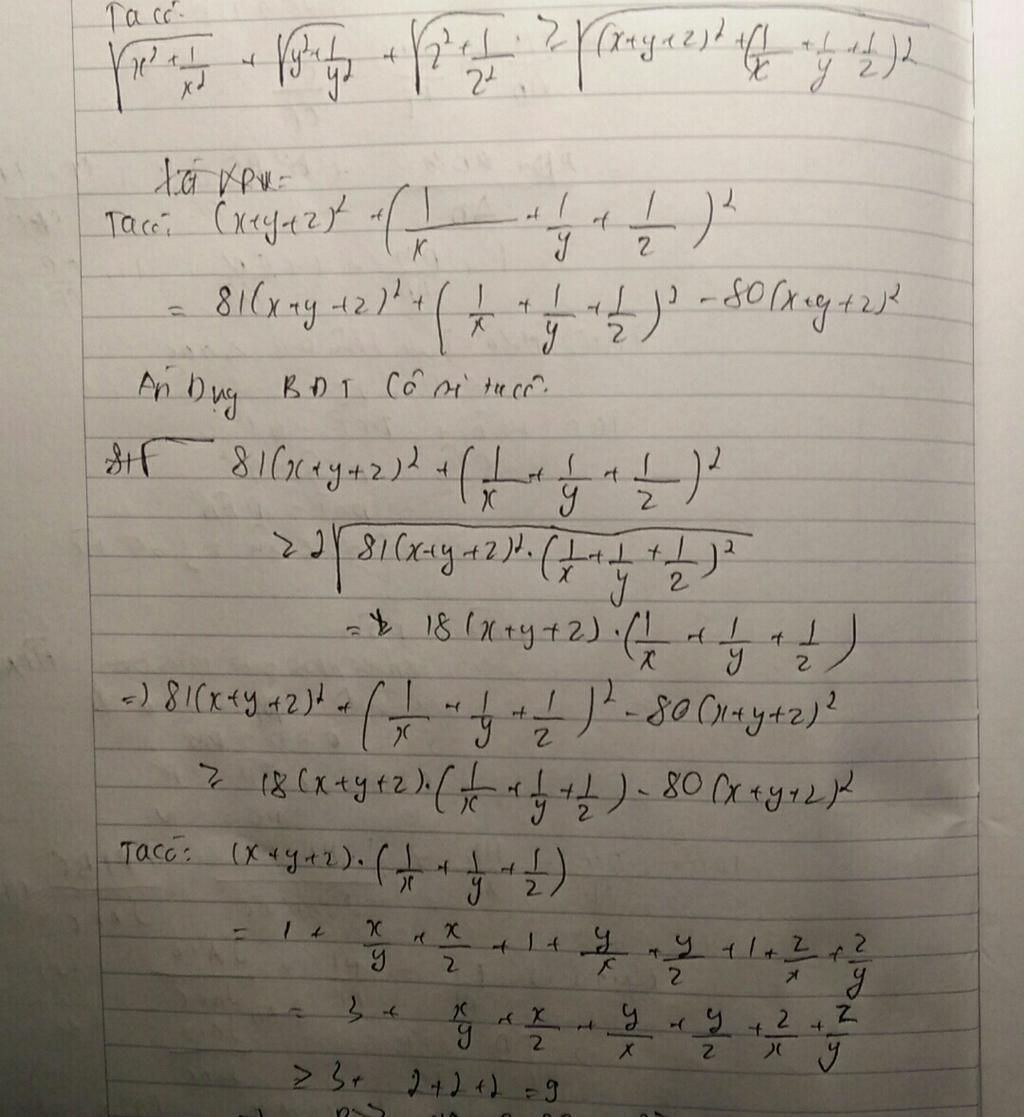 Ta có:
√(x² + 1/x²) + √(y² + 1/y²) + √(z² + 1/z²) ≥ √((x+y+z)² + (1/x + 1/y + 1/z)²)
Tacó: (x+y+z)² + (1/x + 1/y + 1/z)²
= 81(x+y+z)² + (1/x + 1/y + 1/z)² - 80(x+y+z)²
Áp Dụng BĐT Cô si ta có:
81(x+y+z)² + (1/x + 1/y + 1/z)²
≥ 2√(81(x+y+z)² . (1/x + 1/y + 1/z)²)
= 18(x+y+z).(1/x + 1/y + 1/z)
=) 81(x+y+z)² + (1/x + 1/y + 1/z)² - 80(x+y+z)²
≥ 18(x+y+z).(1/x + 1/y + 1/z) - 80(x+y+z)²
Tacó: (x+y+z).(1/x + 1/y + 1/z)
= 1 + x/y + x/z + 1 + y/x + y/z + 1 + z/x + z/y
= 3 + x/y + x/z + y/x + y/z + z/x + z/y
≥ 3+ 2+2+2 = 9